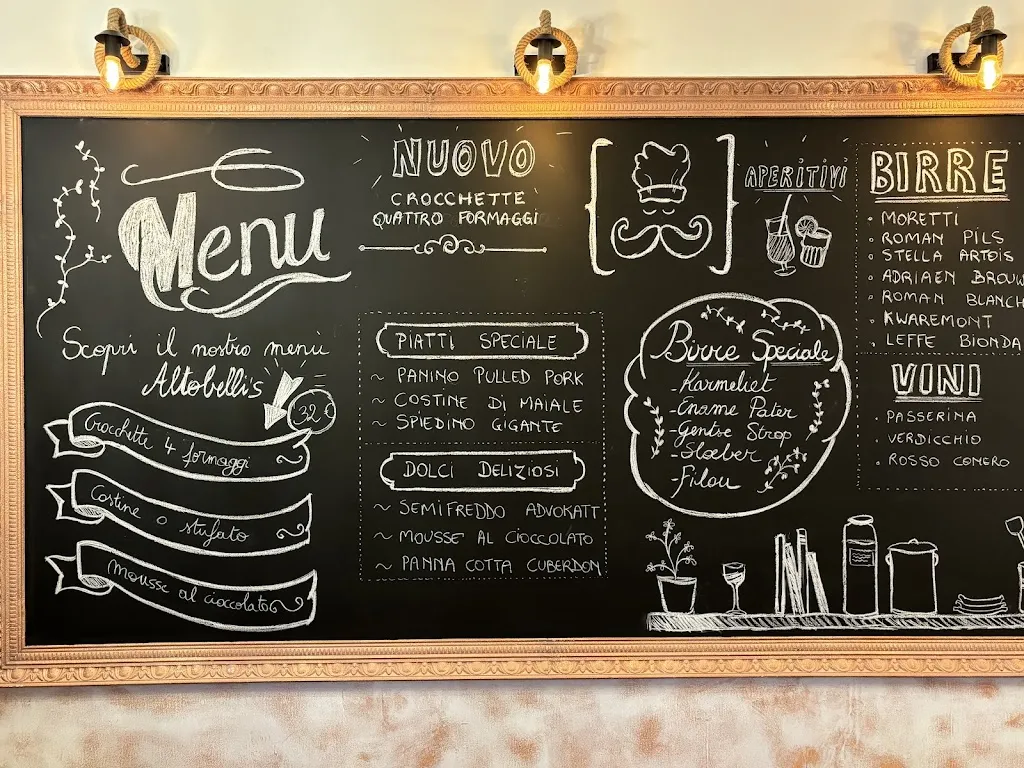 Menu
Scopri il nostro menù
Altobelli's
32 €
Crocchette 4 formaggi
Costine o stufato
mousse al cioccolato
NUOVO
CROCCHETTE
QUATTRO FORMAGGI
PIATTI SPECIALE
~ PANINO PULLED PORK
~ COSTINE DI MAIALE
~ SPIEDINO GIGANTE
DOLCI DELIZIOSI
~ SEMIFREDDO ADVOKATT
~ MOUSSE AL CIOCCOLATO
~ PANNA COTTA CUBERDON
APERITIVI
Birre Speciale
- Karmeliet
- Ename Pater
- Gentse Strop
- Slœber
- Filou
BIRRE
• MORETTI
• ROMAN PILS
• STELLA ARTOIS
• ADRIAEN BROUW
• ROMAN BLANCH
• KWAREMONT
• LEFFE BIONDA
VINI
• PASSERINA
• VERDICCHIO
• ROSSO CONERO